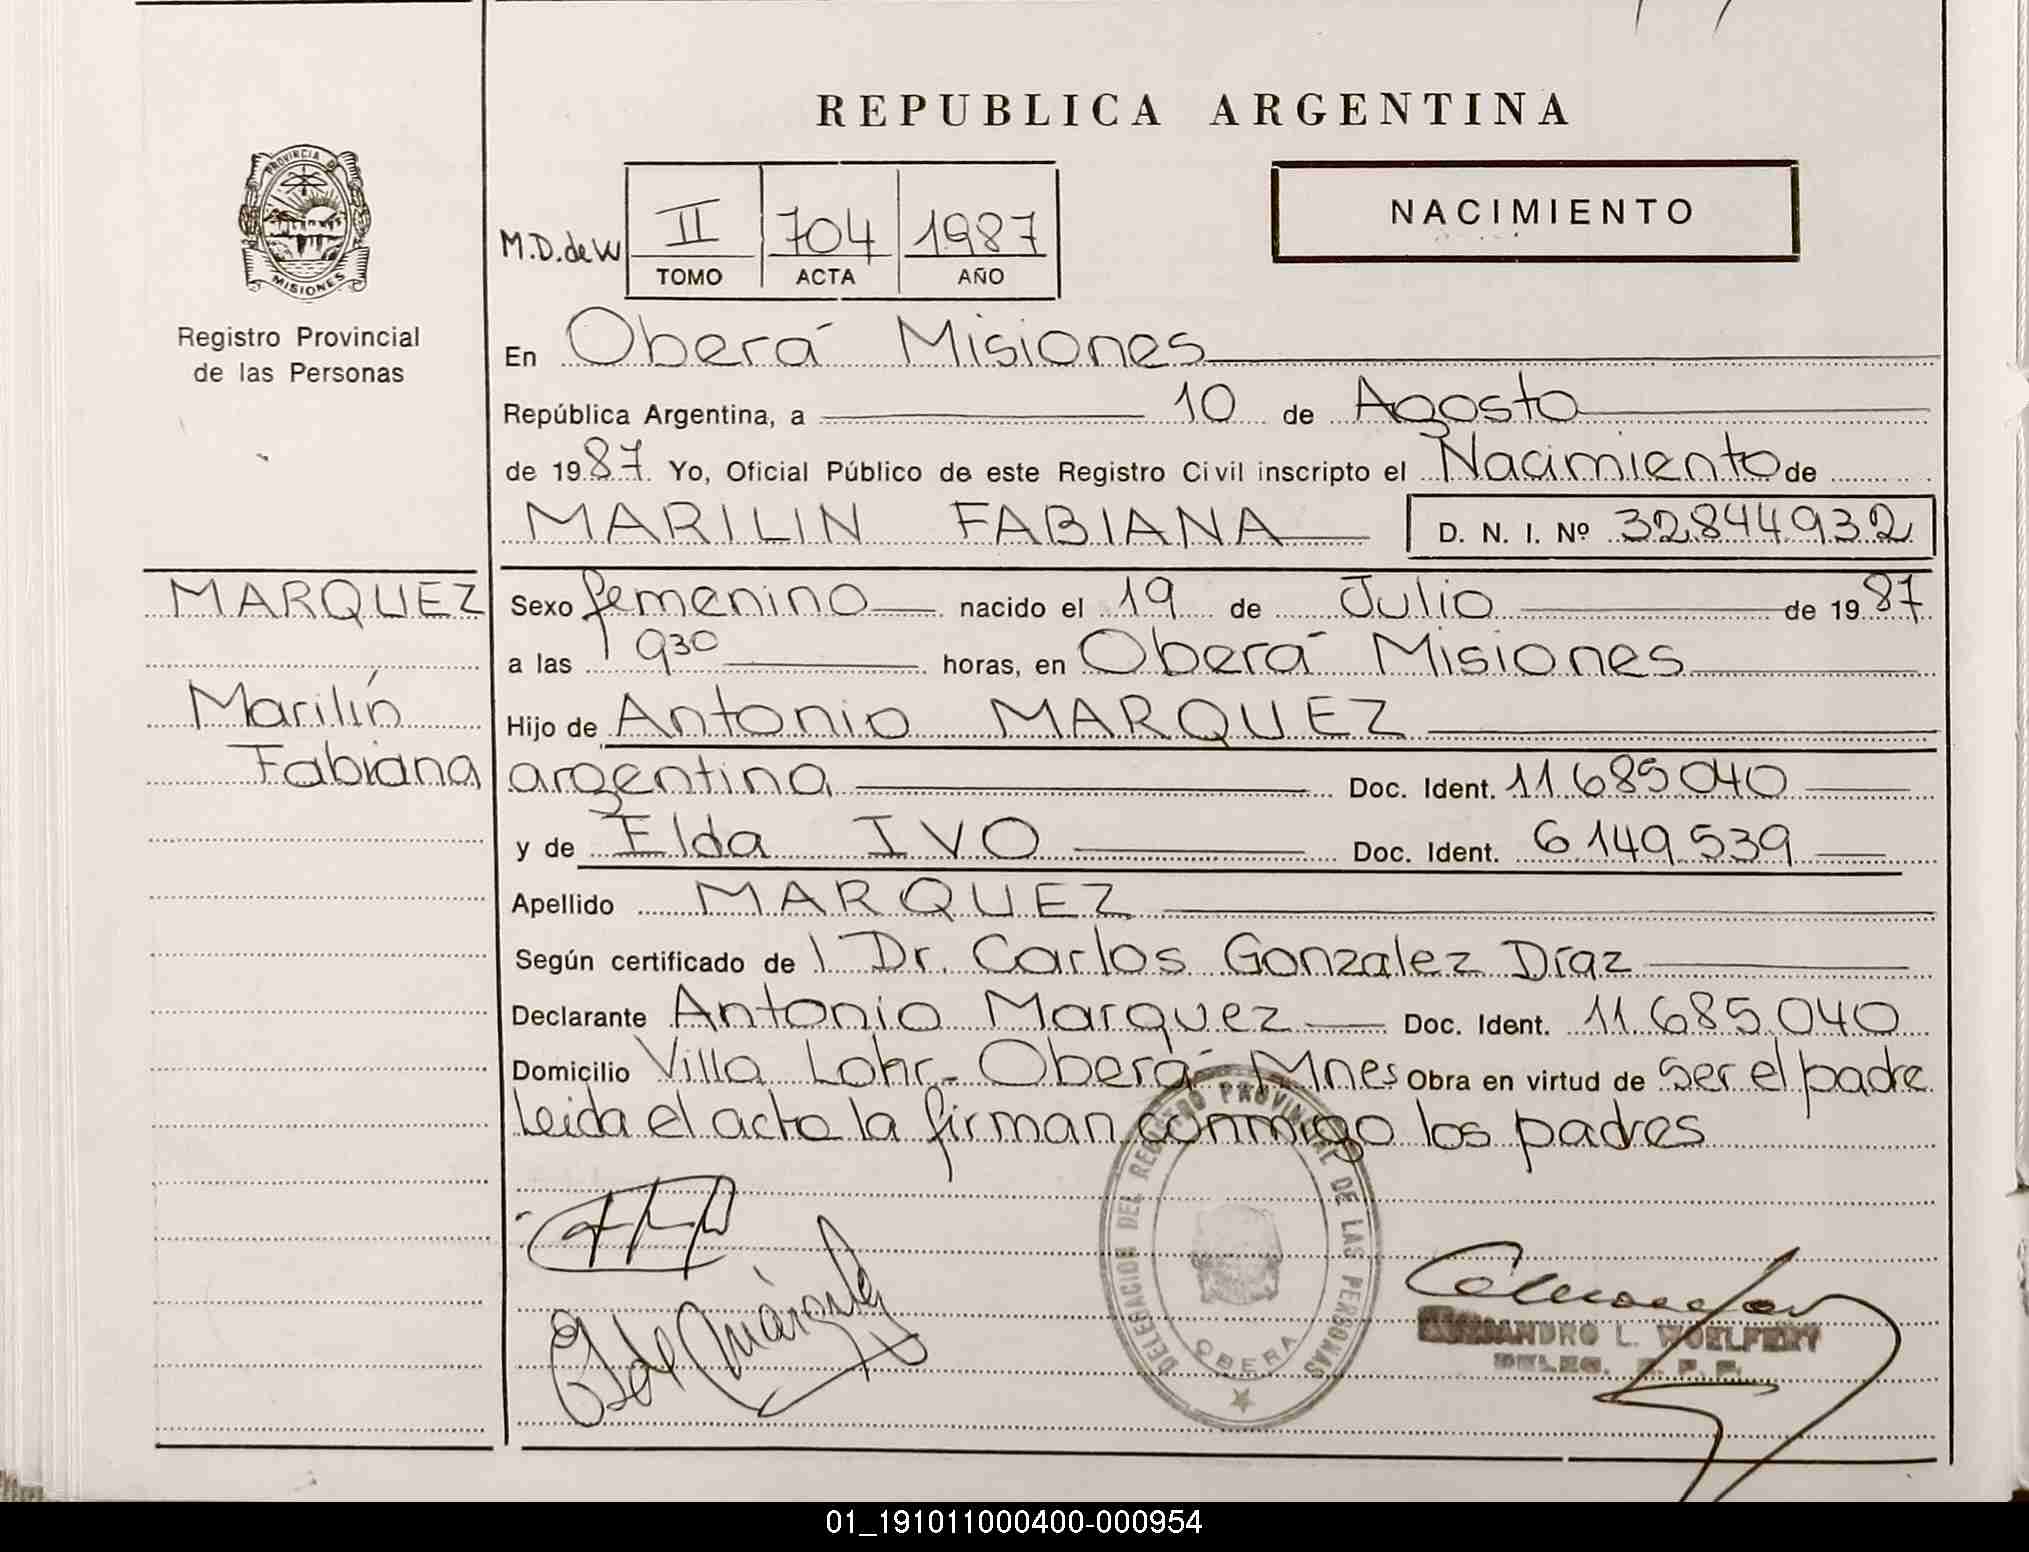 REPUBLICA ARGENTINA
PROVINCIA DE
MISIONES
Registro Provincial
de las Personas
M.D.de W
II 704 1987
TOMO ACTA AÑO
NACIMIENTO
En Oberá Misiones
República Argentina, a 10 de Agosto
de 1987. Yo, Oficial Público de este Registro Civil inscripto el Nacimiento de
MARILIN FABIANA D. N. I. Nº 32844932
MARQUEZ
Marilín
Fabiana
Sexo femenino nacido el 19 de Julio de 1987.
a las 930 horas, en Oberá Misiones
Hijo de Antonio MARQUEZ
argentina Doc. Ident. 11.685.040
y de Elda IVO Doc. Ident. 6.149.539
Apellido MARQUEZ
Según certificado de Dr. Carlos Gonzalez Díaz
Declarante Antonio Marquez Doc. Ident. 11.685.040
Domicilio Villa Lohr - Oberá - Mnes Obra en virtud de ser el padre
leida el acta la firman conmigo los padres
DELEGACION DEL REGISTRO PROVINCIAL DE LAS PERSONAS
OBERA
L. WOELFERT
01_191011000400-000954